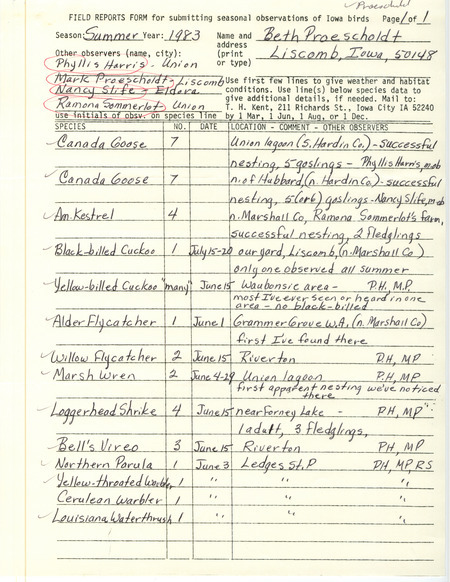 Proescholdt
FIELD REPORTS FORM for submitting seasonal observations of Iowa birds Page 1 of 1
Season: Summer Year: 1983 Name and Beth Proescholdt
address
Other observers (name, city): (print Liscomb, Iowa, 50148
Phyllis Harris - Union or type)
Mark Proescholdt - Liscomb Use first few lines to give weather and habitat
Nancy Slife - Eldora conditions. Use line(s) below species data to
give additional details, if needed. Mail to:
Ramona Sommerlot, Union T. H. Kent, 211 Richards St., Iowa City IA 52240
use initials of obsv. on species line by 1 Mar, 1 Jun, 1 Aug, or 1 Dec.
SPECIES NO. DATE LOCATION - COMMENT - OTHER OBSERVERS
Canada Goose 7 Union lagoon (S. Hardin Co.) - successful
nesting, 5 goslings - Phyllis Harris, m.ob
Canada Goose 7 n. of Hubbard, (n. Hardin Co.) - successful
nesting, 5 (or 6) goslings - Nancy Slife, m.ob
Am. Kestrel 4 n. Marshall Co, Ramona Sommerlot's farm,
successful nesting, 2 fledglings
Black-billed Cuckoo 1 July 15-20 our yard, Liscomb, (n. Marshall Co)
only one observed all summer
Yellow-billed Cuckoo "many" June 15 Waubonsie area - PH, MP
most I've ever seen or heard in one
area - no black-billed
Alder Flycatcher 1 June 1 Grammer Grove W.A, (n. Marshall Co)
first I've found there
Willow Flycatcher 2 June 15 Riverton PH, MP
Marsh Wren 2 June 4-29 Union lagoon PH, MP
first apparent nesting we've noticed
there
Loggerhead Shrike 4 June 15 near Forney Lake - PH, MP
1 adult, 3 fledglings,
Bell's Vireo 3 June 15 Riverton PH, MP
Northern Parula 1 June 3 Ledges St. P PH, MP, RS
Yellow-throated Warbler 1 " " "
Cerulean Warbler 1 " " "
Louisiana Waterthrush 1 " " "